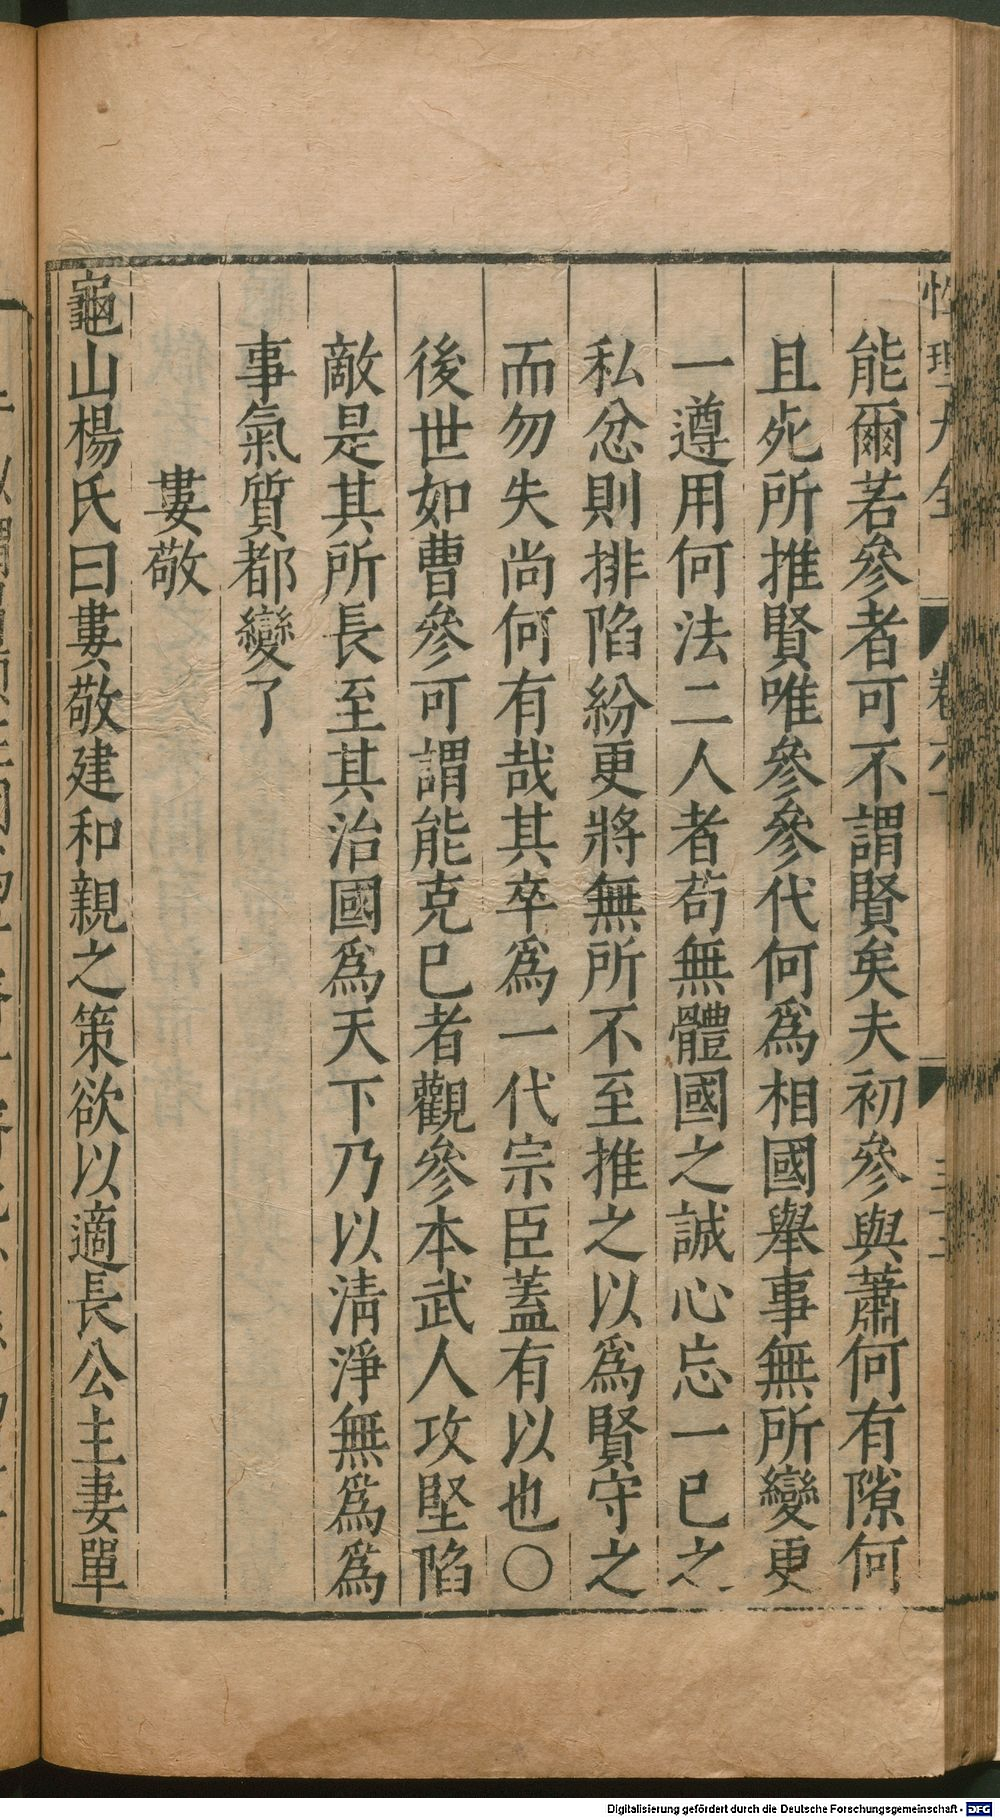 性理大全 卷六十
能爾若參者可不謂賢矣夫初參與蕭何有隙何
且死所推賢唯參參代何爲相國舉事無所變更
一遵用何法二人者苟無體國之誠心忘一己之
私忿則排陷紛更將無所不至推之以爲賢守之
而勿失尚何有哉其卒爲一代宗臣蓋有以也○
後世如曹參可謂能克已者觀參本武人攻堅陷
敵是其所長至其治國爲天下乃以淸淨無爲爲
事氣質都變了
婁敬
龜山楊氏曰婁敬建和親之策欲以適長公主妻單
Digitalisierung gefördert durch die Deutsche Forschungsgemeinschaft - DFG